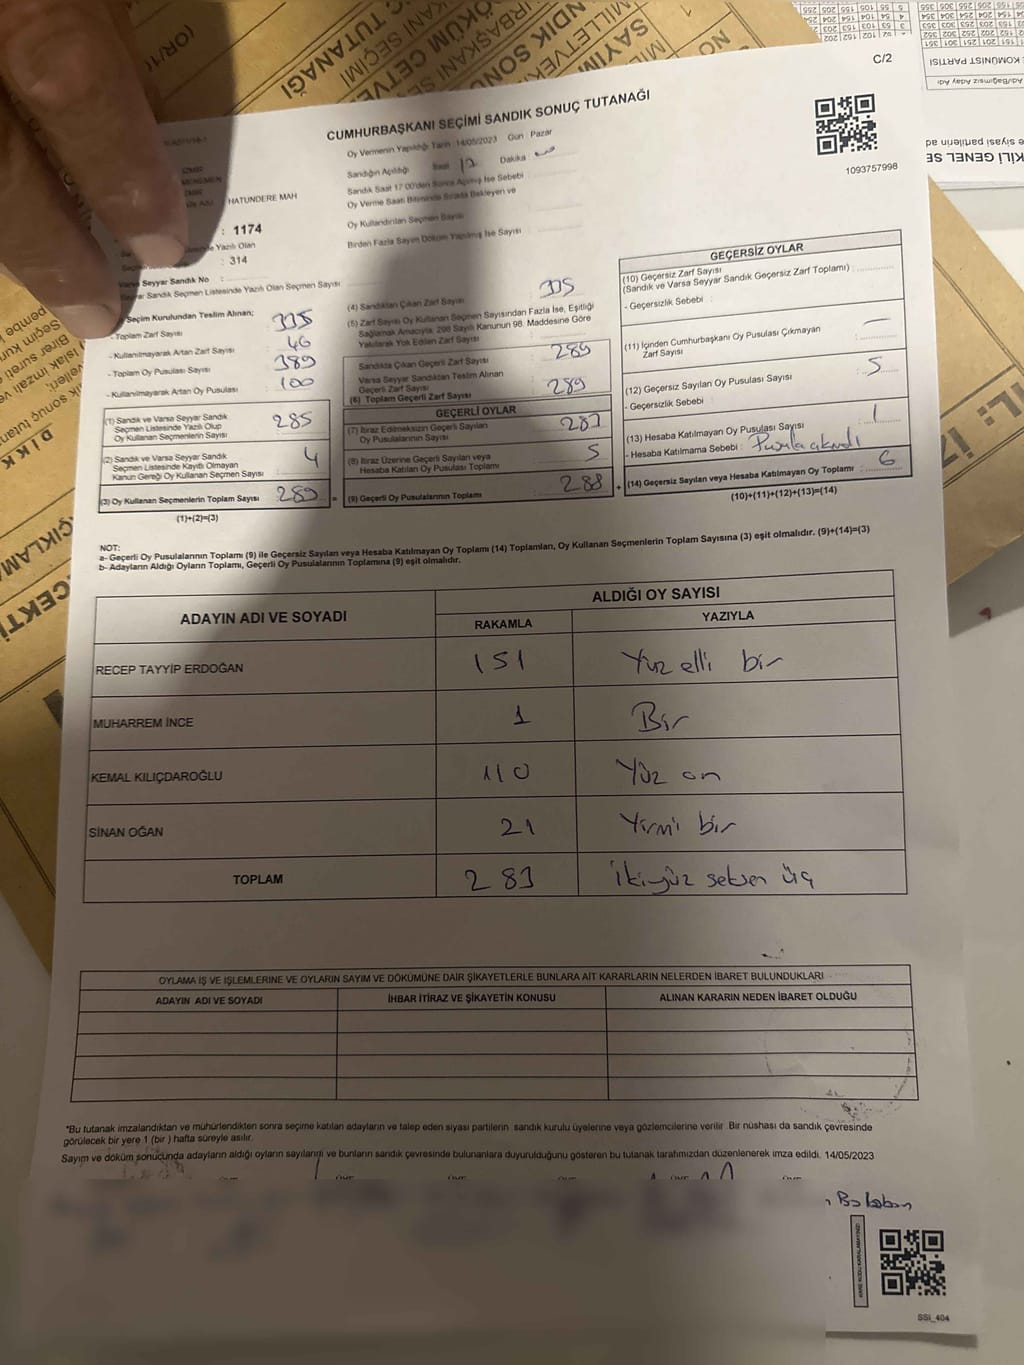 C/2
CUMHURBAŞKANI SEÇİMİ SANDIK SONUÇ TUTANAĞI
1093757998
Oy Vermenin Yapıldığı Tarih : 14/05/2023 Gün : Pazar
Sandığın Açıldığı Saat 17 Dakika :
Sandık Saat 17:00'den Sonra Açılmış İse Sebebi
Oy Verme Saati Bitiminde Sırada Bekleyen ve
Oy Kullandırılan Seçmen Sayısı
Birden Fazla Sayım Döküm Yapılmış İse Sayısı
İZMİR
MENEMEN
HATUNDERE MAH
: 1174
Yazılı Olan
: 314
Varsa Seyyar Sandık No :
Seyyar Sandık Seçmen Listesinde Yazılı Olan Seçmen Sayısı
Seçim Kurulundan Teslim Alınan;
- Toplam Zarf Sayısı 335
- Kullanılmayarak Artan Zarf Sayısı 46
- Toplam Oy Pusulası Sayısı 389
- Kullanılmayarak Artan Oy Pusulası 100
(1) Sandık ve Varsa Seyyar Sandık
Seçmen Listesinde Yazılı Olup
Oy Kullanan Seçmenlerin Sayısı 285
(2) Sandık ve Varsa Seyyar Sandık
Seçmen Listesinde Kayıtlı Olmayan
Kanun Gereği Oy Kullanan Seçmen Sayısı 4
(3) Oy Kullanan Seçmenlerin Toplam Sayısı 289
(1)+(2)=(3)
(4) Sandıktan Çıkan Zarf Sayısı 335
(5) Zarf Sayısı Oy Kullanan Seçmen Sayısından Fazla İse, Eşitliği
Sağlamak Amacıyla, 298 Sayılı Kanunun 98. Maddesine Göre
Yakılarak Yok Edilen Zarf Sayısı
Sandıkta Çıkan Geçerli Zarf Sayısı 289
Varsa Seyyar Sandıktan Teslim Alınan
Geçerli Zarf Sayısı
(6) Toplam Geçerli Zarf Sayısı 289
GEÇERLİ OYLAR
(7) İtiraz Edilmeksizin Geçerli Sayılan
Oy Pusulalarının Sayısı 283
(8) İtiraz Üzerine Geçerli Sayılan veya
Hesaba Katılan Oy Pusulası Toplamı 5
(9) Geçerli Oy Pusulalarının Toplamı 288
GEÇERSİZ OYLAR
(10) Geçersiz Zarf Sayısı
(Sandık ve Varsa Seyyar Sandık Geçersiz Zarf Toplamı)
- Geçersizlik Sebebi :
(11) İçinden Cumhurbaşkanı Oy Pusulası Çıkmayan
Zarf Sayısı —
(12) Geçersiz Sayılan Oy Pusulası Sayısı 5
- Geçersizlik Sebebi
(13) Hesaba Katılmayan Oy Pusulası Sayısı 1
- Hesaba Katılmama Sebebi :
(14) Geçersiz Sayılan veya Hesaba Katılmayan Oy Toplamı : 6
(10)+(11)+(12)+(13)=(14)
NOT:
a- Geçerli Oy Pusulalarının Toplamı (9) ile Geçersiz Sayılan veya Hesaba Katılmayan Oy Toplamı (14) Toplamları, Oy Kullanan Seçmenlerin Toplam Sayısına (3) eşit olmalıdır. (9)+(14)=(3)
b- Adayların Aldığı Oyların Toplamı, Geçerli Oy Pusulalarının Toplamına (9) eşit olmalıdır.
ADAYIN ADI VE SOYADI
ALDIĞI OY SAYISI
RAKAMLA YAZIYLA
RECEP TAYYİP ERDOĞAN 151 Yüz elli bir
MUHARREM İNCE 1 Bir
KEMAL KILIÇDAROĞLU 110 Yüz on
SİNAN OĞAN 21 Yirmi bir
TOPLAM 283 İkiyüz seksen üç
OYLAMA İŞ VE İŞLEMLERİNE VE OYLARIN SAYIM VE DÖKÜMÜNE DAİR ŞİKAYETLERLE BUNLARA AİT KARARLARIN NELERDEN İBARET BULUNDUKLARI
ADAYIN ADI VE SOYADI İHBAR İTİRAZ VE ŞİKAYETİN KONUSU ALINAN KARARIN NEDEN İBARET OLDUĞU
*Bu tutanak imzalandıktan ve mühürlendikten sonra seçime katılan adayların ve talep eden siyasi partilerin sandık kurulu üyelerine veya gözlemcilerine verilir. Bir nüshası da sandık çevresinde
görülecek bir yere 1 (bir ) hafta süreyle asılır.
Sayım ve döküm sonucunda adayların aldığı oyların sayılarını ve bunların sandık çevresinde bulunanlara duyurulduğunu gösteren bu tutanak tarafımızdan düzenlenerek imza edildi. 14/05/2023
Balaban
SSİ_404